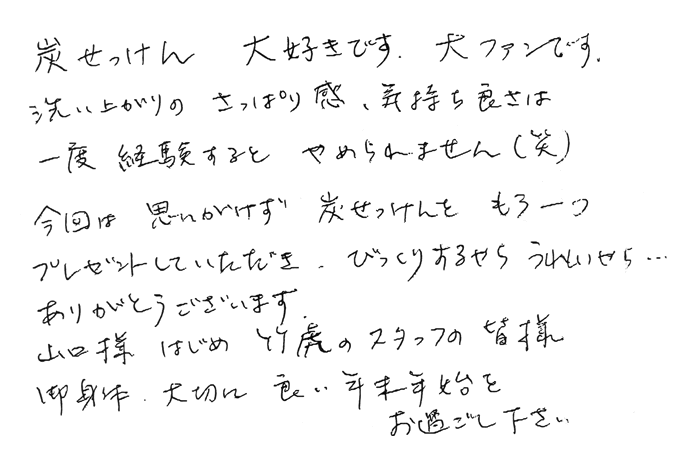 炭せっけん 大好きです. 大ファンです.
洗い上がりの さっぱり感、気持ち良さは
一度 経験すると やめられません(笑)
今回は 思いがけず 炭せっけんを もう一つ
プレゼントしていただき. びっくりするやら うれしいやら…
ありがとうございます.
山口様 はじめ 竹虎のスタッフの 皆様
御身体. 大切に 良い 年末年始を
お過ごし下さい